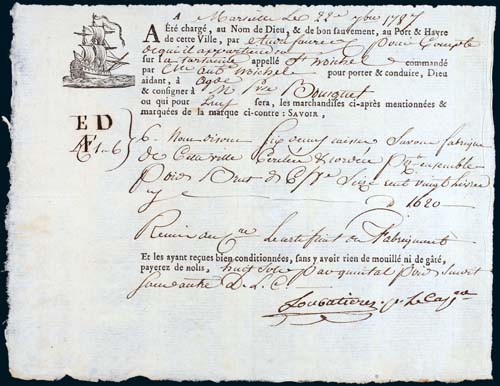 A Marseille Le 22e 9bre 1787
A Été chargé, au Nom de Dieu, & de bon sauvement, au Port & Havre
de cette Ville, par pour Compte
de qui il appartiendra
sur la tartanne appellé St Michel commandé
par Michel pour porter & conduire, Dieu
aidant, à Agde
& consigner à M Bousquet
ou qui pour Luy sera, les marchandises ci-après mentionnées &
marquées de la marque ci-contre : SAVOIR,
E D
Æ 1-6
6. Nous disons Six demy caisses Savon fabrique
de Cette ville Cerclées & cordées ensemble
Poids Brut de Seize cent vingt livres
1620
Remis au Cne Le certificat du Fabriquant
Et les ayant reçues bien conditionnées, sans y avoir rien de mouillé ni de gâté,
payerez de nolis, huit sols par quintal poids susdit
sans autre D. L. C